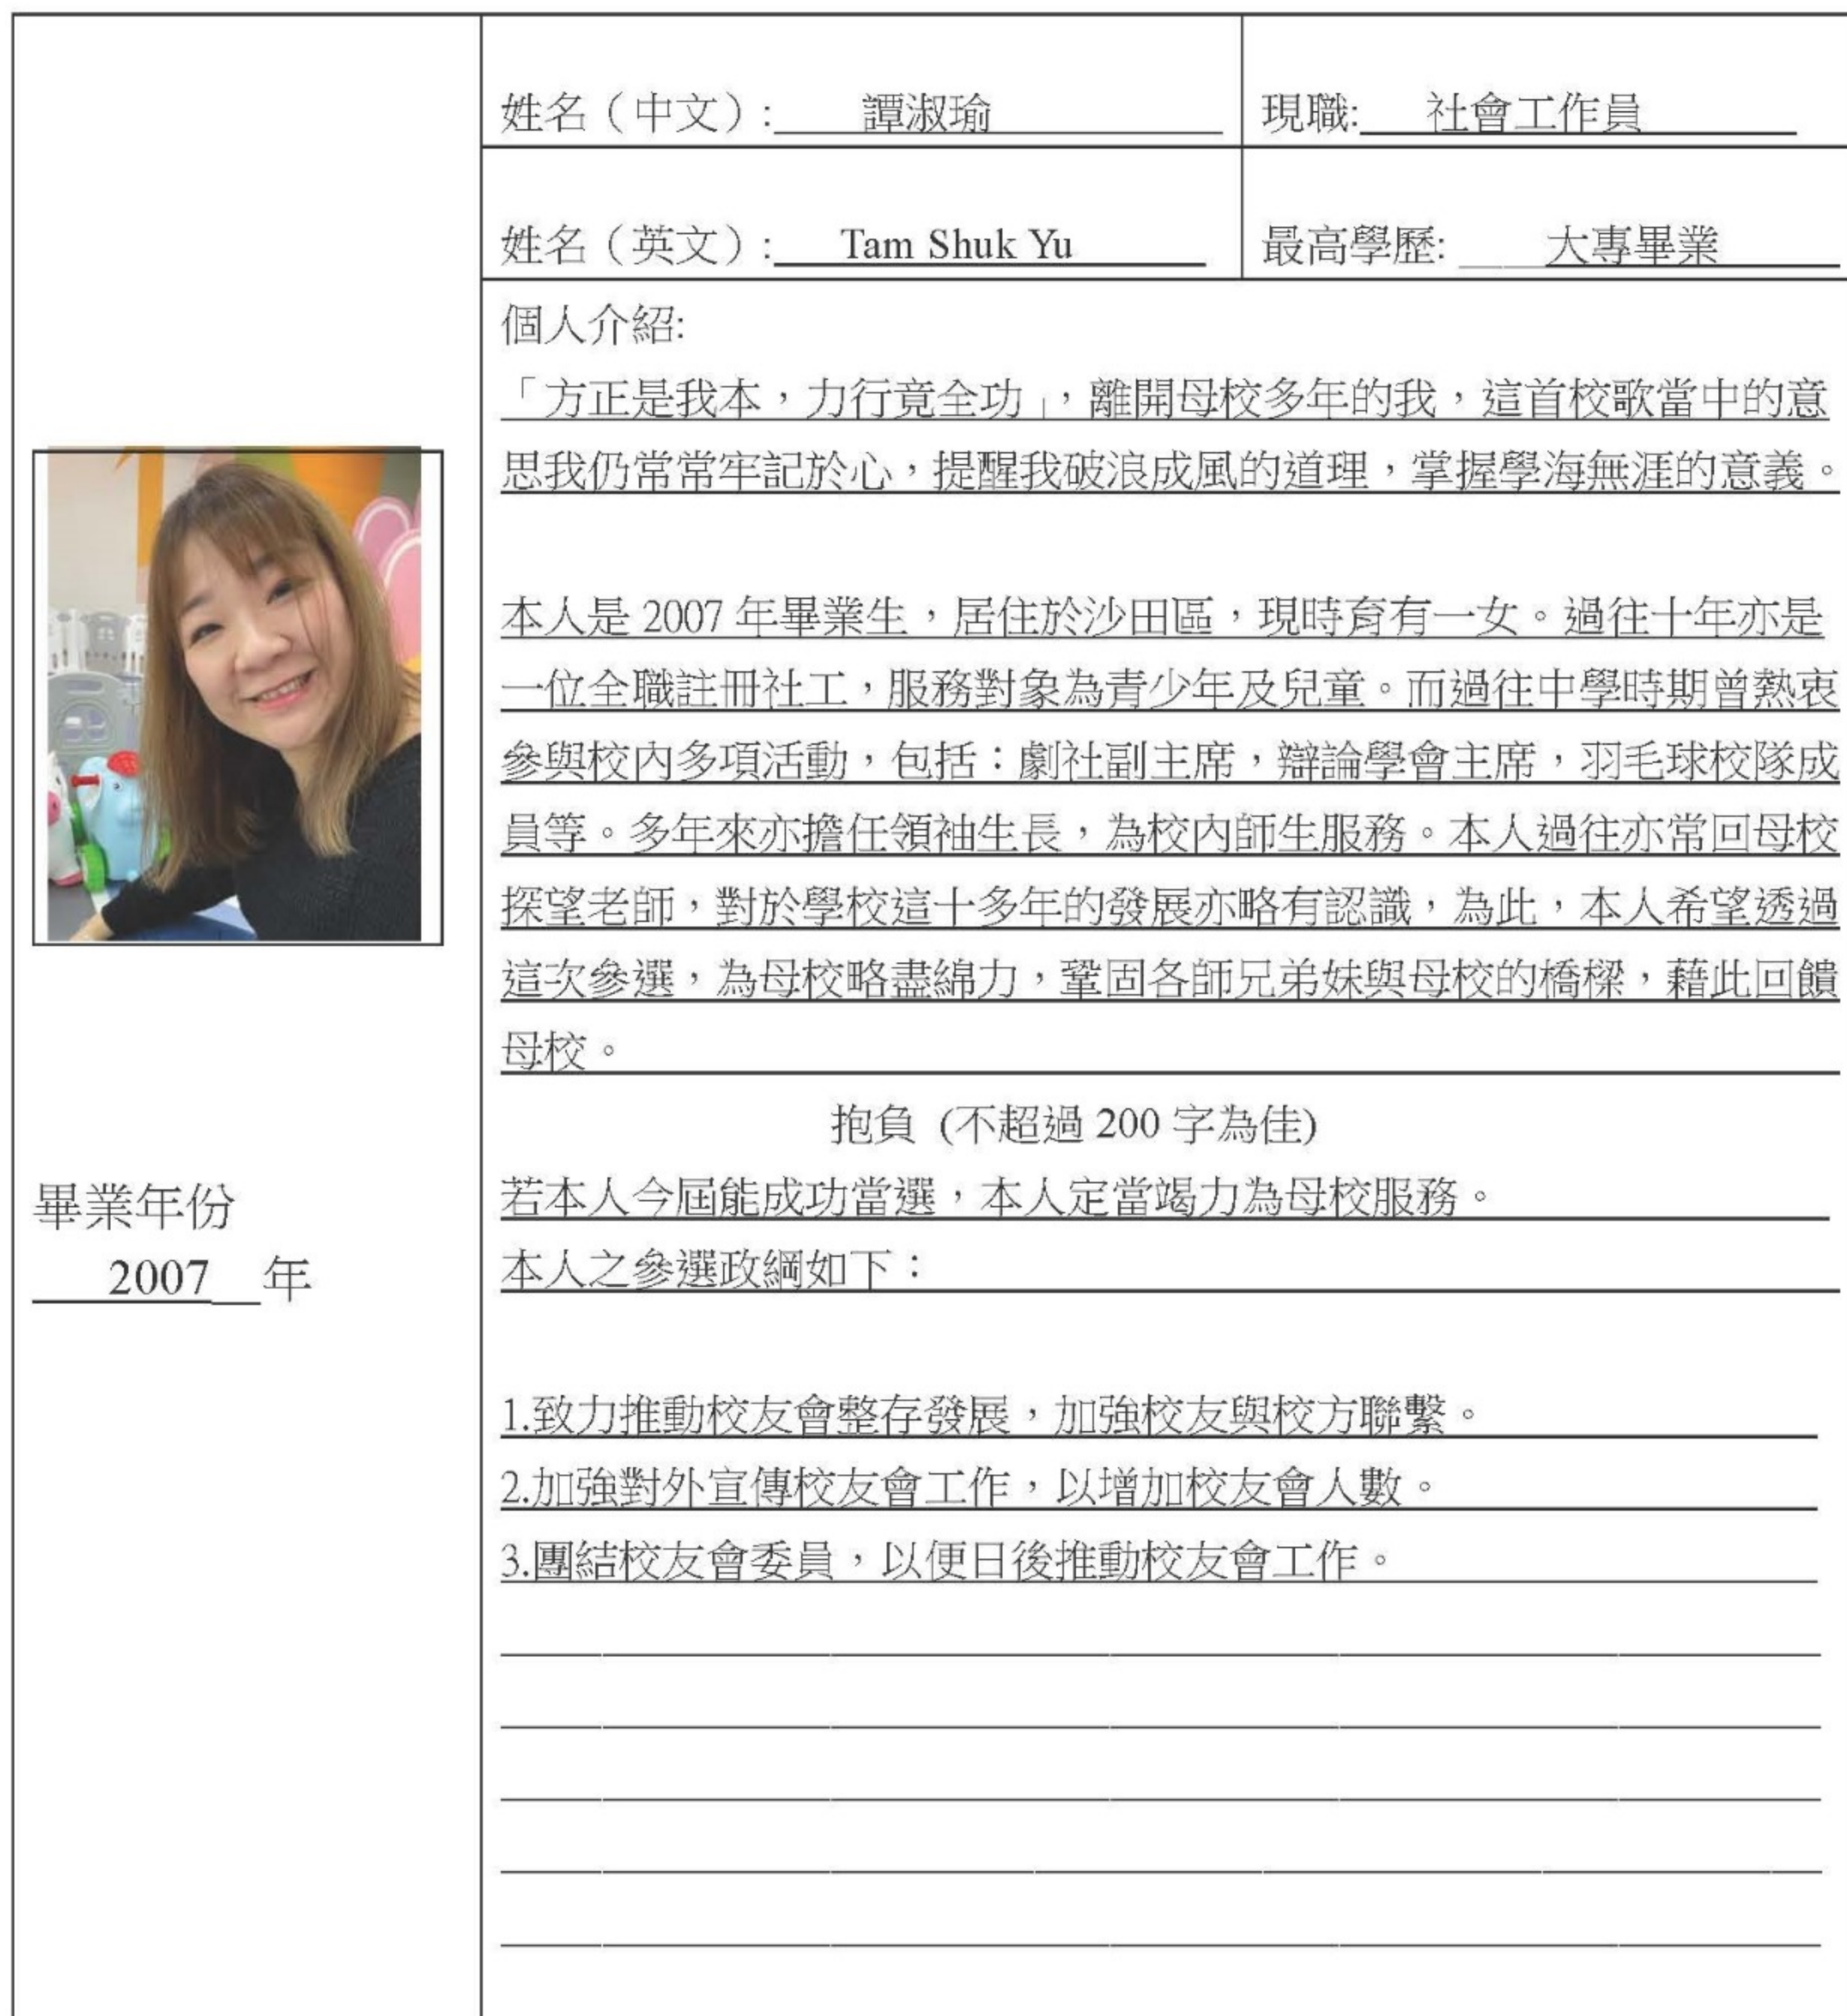 姓名（中文）: 譚淑瑜
現職: 社會工作員
姓名（英文）: Tam Shuk Yu
最高學歷: 大專畢業
個人介紹:
「方正是我本，力行竟全功」，離開母校多年的我，這首校歌當中的意
思我仍常常牢記於心，提醒我破浪成風的道理，掌握學海無涯的意義。
本人是 2007 年畢業生，居住於沙田區，現時育有一女。過往十年亦是
一位全職註冊社工，服務對象為青少年及兒童。而過往中學時期曾熱衷
參與校內多項活動，包括：劇社副主席，辯論學會主席，羽毛球校隊成
員等。多年來亦擔任領袖生長，為校內師生服務。本人過往亦常回母校
探望老師，對於學校這十多年的發展亦略有認識，為此，本人希望透過
這次參選，為母校略盡綿力，鞏固各師兄弟妹與母校的橋樑，藉此回饋
母校。
抱負 (不超過 200 字為佳)
若本人今屆能成功當選，本人定當竭力為母校服務。
本人之參選政綱如下：
1.致力推動校友會整存發展，加強校友與校方聯繫。
2.加強對外宣傳校友會工作，以增加校友會人數。
3.團結校友會委員，以便日後推動校友會工作。
畢業年份
2007 年